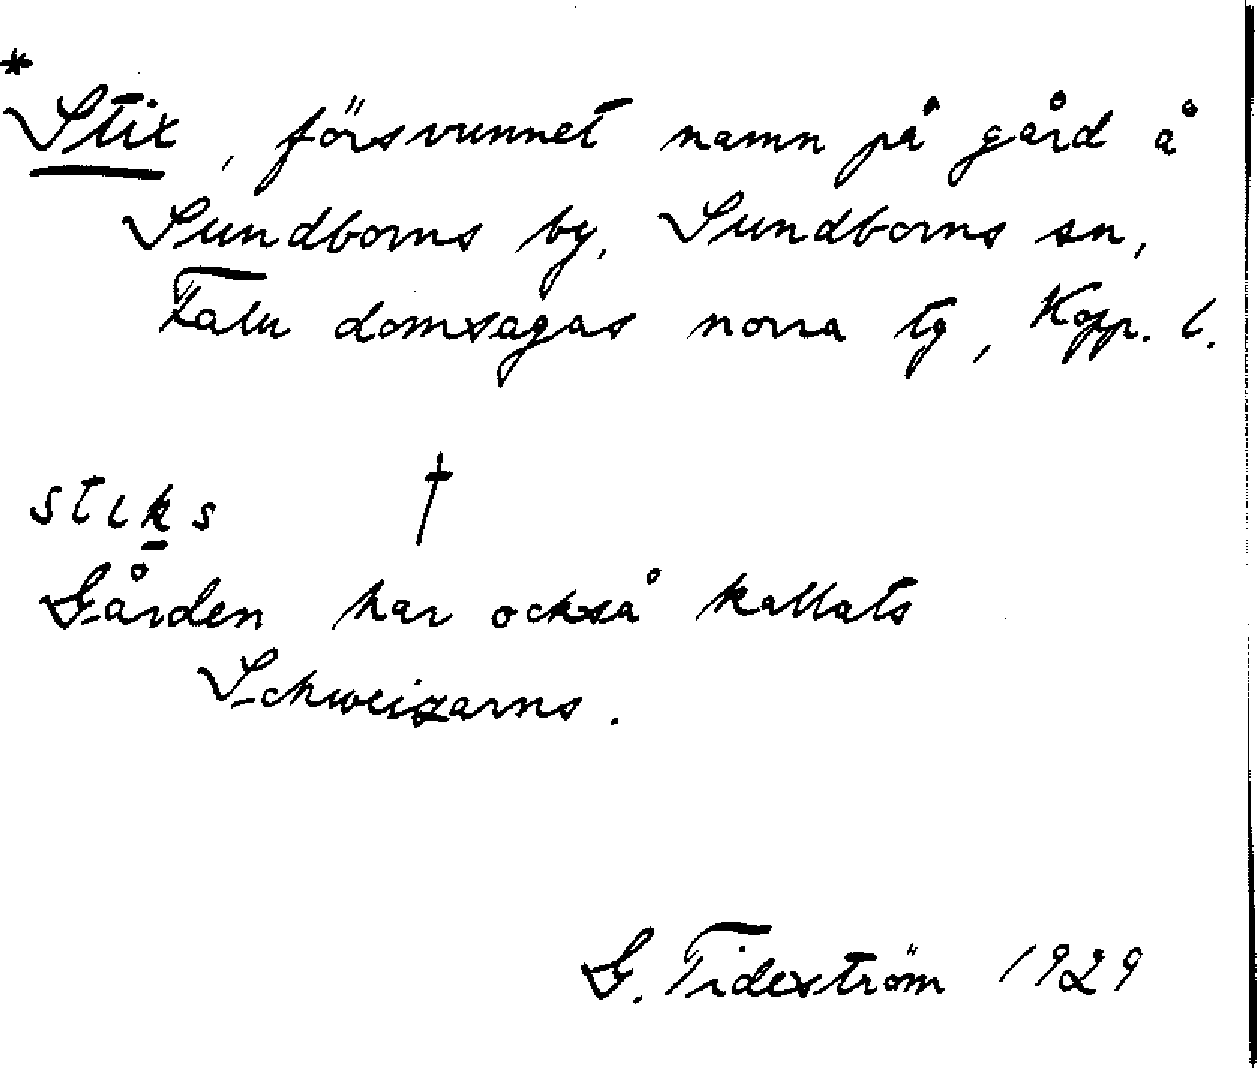 *
Stix, försvunnet namn på gård å
Sundborns by, Sundborns sn,
Falu domsagas norra tg, Kopp. l.
stiks †
Gården har också kallats
Schweizarns.
G. Tideström 1929